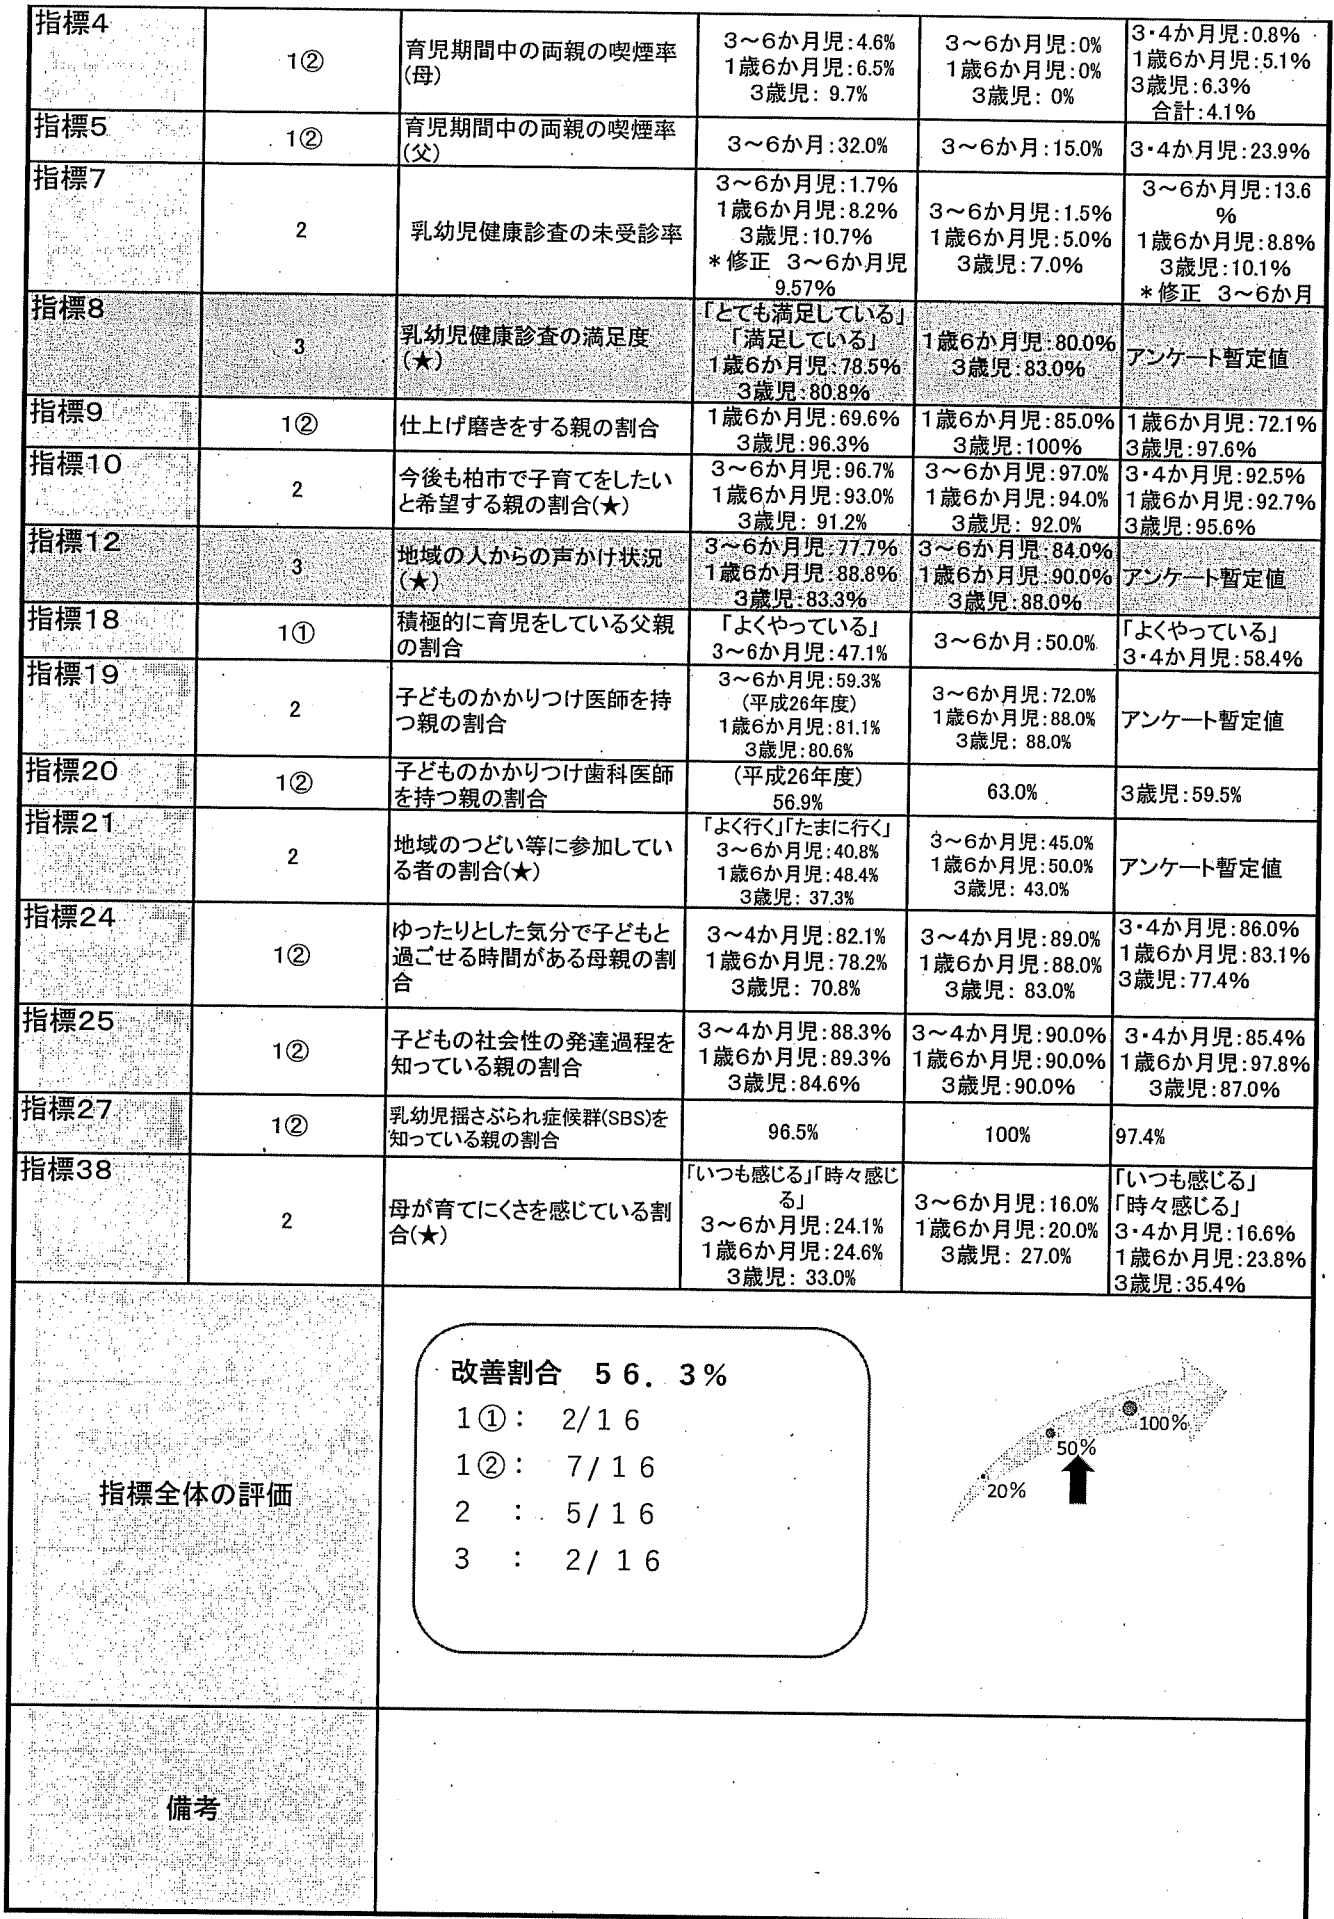 指標4
1②
育児期間中の両親の喫煙率
(母)
3～6か月児:4.6%
1歳6か月児:6.5%
3歳児: 9.7%
3～6か月児:0%
1歳6か月児:0%
3歳児: 0%
3・4か月児:0.8%
1歳6か月児:5.1%
3歳児:6.3%
合計:4.1%
指標5
1②
育児期間中の両親の喫煙率
(父)
3～6か月:32.0%
3～6か月:15.0%
3・4か月児:23.9%
指標7
2
乳幼児健康診査の未受診率
3～6か月児:1.7%
1歳6か月児:8.2%
3歳児:10.7%
＊修正 3～6か月児
9.57%
3～6か月児:1.5%
1歳6か月児:5.0%
3歳児:7.0%
3～6か月児:13.6
%
1歳6か月児:8.8%
3歳児:10.1%
＊修正 3～6か月
指標8
3
乳幼児健康診査の満足度
(★)
「とても満足している」
「満足している」
1歳6か月児:78.5%
3歳児:80.8%
1歳6か月児:80.0%
3歳児:83.0%
アンケート暫定値
指標9
1②
仕上げ磨きをする親の割合
1歳6か月児:69.6%
3歳児:96.3%
1歳6か月児:85.0%
3歳児:100%
1歳6か月児:72.1%
3歳児:97.6%
指標10
2
今後も柏市で子育てをしたい
と希望する親の割合(★)
3～6か月児:96.7%
1歳6か月児:93.0%
3歳児: 91.2%
3～6か月児:97.0%
1歳6か月児:94.0%
3歳児: 92.0%
3・4か月児:92.5%
1歳6か月児:92.7%
3歳児:95.6%
指標12
3
地域の人からの声かけ状況
(★)
3～6か月児:77.7%
1歳6か月児:88.8%
3歳児:83.3%
3～6か月児:84.0%
1歳6か月児:90.0%
3歳児:88.0%
アンケート暫定値
指標18
1①
積極的に育児をしている父親
の割合
「よくやっている」
3～6か月児:47.1%
3～6か月:50.0%
「よくやっている」
3・4か月児:58.4%
指標19
2
子どものかかりつけ医師を持
つ親の割合
3～6か月児:59.3%
(平成26年度)
1歳6か月児:81.1%
3歳児:80.6%
3～6か月児:72.0%
1歳6か月児:88.0%
3歳児: 88.0%
アンケート暫定値
指標20
1②
子どものかかりつけ歯科医師
を持つ親の割合
(平成26年度)
56.9%
63.0%
3歳児:59.5%
指標21
2
地域のつどい等に参加してい
る者の割合(★)
「よく行く」「たまに行く」
3～6か月児:40.8%
1歳6か月児:48.4%
3歳児: 37.3%
3～6か月児:45.0%
1歳6か月児:50.0%
3歳児: 43.0%
アンケート暫定値
指標24
1②
ゆったりとした気分で子どもと
過ごせる時間がある母親の割
合
3～4か月児:82.1%
1歳6か月児:78.2%
3歳児: 70.8%
3～4か月児:89.0%
1歳6か月児:88.0%
3歳児: 83.0%
3・4か月児:86.0%
1歳6か月児:83.1%
3歳児:77.4%
指標25
1②
子どもの社会性の発達過程を
知っている親の割合
3～4か月児:88.3%
1歳6か月児:89.3%
3歳児:84.6%
3～4か月児:90.0%
1歳6か月児:90.0%
3歳児:90.0%
3・4か月児:85.4%
1歳6か月児:97.8%
3歳児:87.0%
指標27
1②
乳幼児揺さぶられ症候群(SBS)を
知っている親の割合
96.5%
100%
97.4%
指標38
2
母が育てにくさを感じている割
合(★)
「いつも感じる」「時々感じ
る」
3～6か月児:24.1%
1歳6か月児:24.6%
3歳児: 33.0%
3～6か月児:16.0%
1歳6か月児:20.0%
3歳児: 27.0%
「いつも感じる」
「時々感じる」
3・4か月児:16.6%
1歳6か月児:23.8%
3歳児:35.4%
指標全体の評価
改善割合 56.3%
1①: 2/16
1②: 7/16
2 : 5/16
3 : 2/16
20%
50%
100%
備考